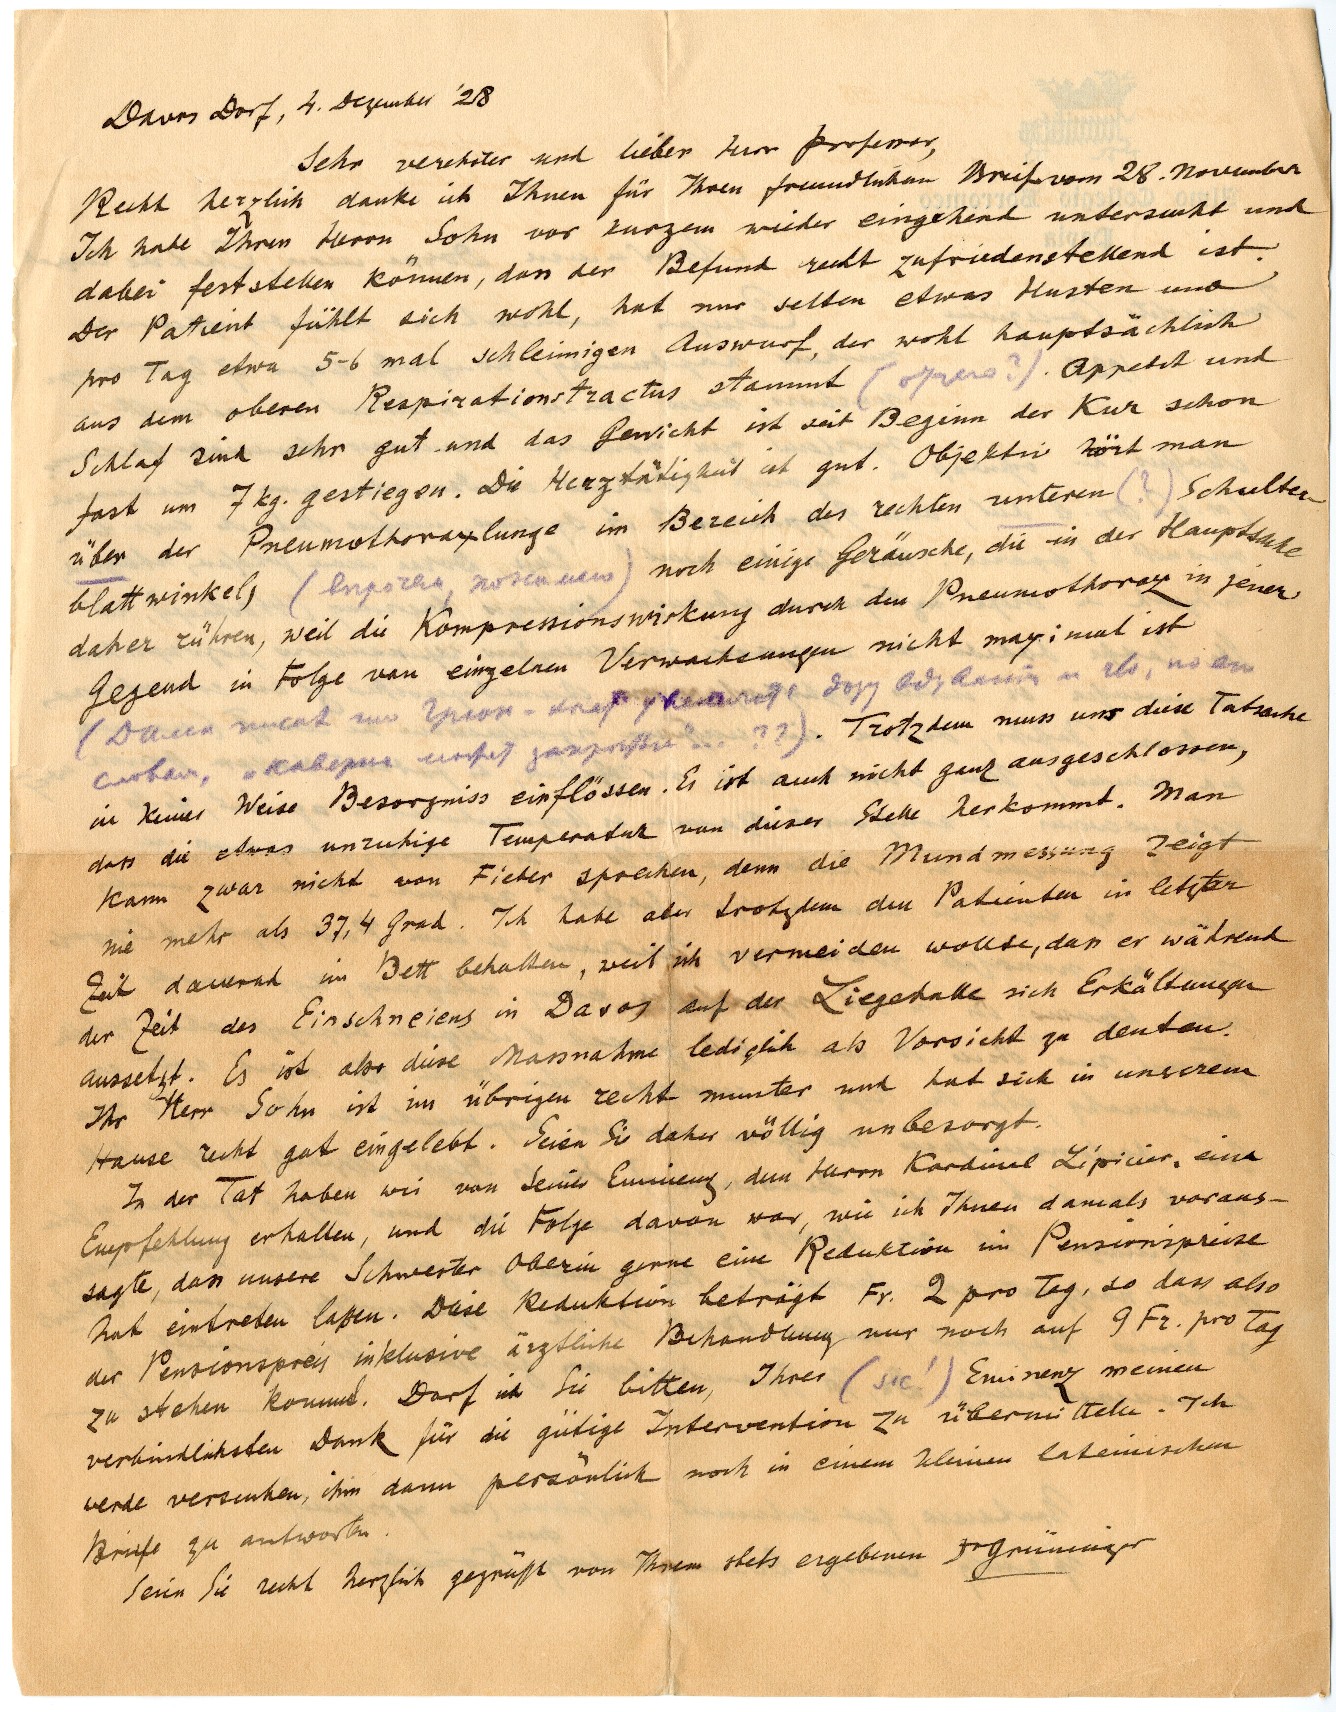 Davos Dorf, 4. Dezember '28
Sehr verehrter und lieber Herr Professor,
Recht herzlich danke ich Ihnen für Ihren freundlichen Brief vom 28. November
Ich habe Ihren Herrn Sohn vor kurzem wieder eingehend untersucht und
dabei feststellen können, dass der Befund recht zufriedenstellend ist.
Der Patient fühlt sich wohl, hat nur selten etwas Husten und
pro Tag etwa 5-6 mal schleimigen Auswurf, der wohl hauptsächlich
aus dem oberen Respirationstractus stammt ( ?). Appetit und
Schlaf sind sehr gut und das Gewicht ist seit Beginn der Kur schon
fast um 7 kg. gestiegen. Die Herztätigkeit ist gut. Objektiv hört man
über der Pneumothoraxlunge im Bereich des rechten unteren (?) Schulter
blattwinkels ( ) noch einige Geräusche, die in der Hauptsache
daher rühren, weil die Kompressionswirkung durch den Pneumothorax in jener
Gegend in Folge von einzelnen Verwachsungen nicht maximal ist
(
"каверна может ... ??). Trotzdem muss uns diese Tatsache
in keiner Weise Besorgniss einflössen. Es ist auch nicht ganz ausgeschlossen,
dass die etwas unruhige Temperatur von dieser Stelle herkommt. Man
kann zwar nicht von Fieber sprechen, denn die Mundmessung zeigt
nie mehr als 37,4 Grad. Ich habe aber trotzdem den Patienten in letzter
Zeit dauernd im Bett behalten, weil ich vermeiden wollte, dass er während
der Zeit des Einschneiens in Davos auf der Liegehalle sich Erkältungen
aussetzt. Es ist also diese Massnahme lediglich als Vorsicht zu deuten.
Ihr Herr Sohn ist im übrigen recht munter und hat sich in unserem
Hause recht gut eingelebt. Seien Sie daher völlig unbesorgt.
In der Tat haben wir von Seiner Eminenz, dem Herrn Kardinal Lipicier, eine
Empfehlung erhalten, und die Folge davon war, wie ich Ihnen damals voraus-
sagte, dass unsere Schwester Oberin gerne eine Reduktion im Pensionspreise
hat eintreten lassen. Diese Reduktion beträgt Fr. 2 pro Tag, so dass also
der Pensionspreis inklusive ärztliche Behandlung nur noch auf 9 Fr. pro Tag
zu stehen kommt. Darf ich Sie bitten, Ihrer (sic!) Eminenz meinen
verbindlichsten Dank für die gütige Intervention zu übermitteln. Ich
werde versuchen, ihm dann persönlich noch in einem kleinen lateinischen
Briefe zu antworten.
Seien Sie recht herzlich gegrüsst von Ihrem stets ergebenen Dr Grüninger